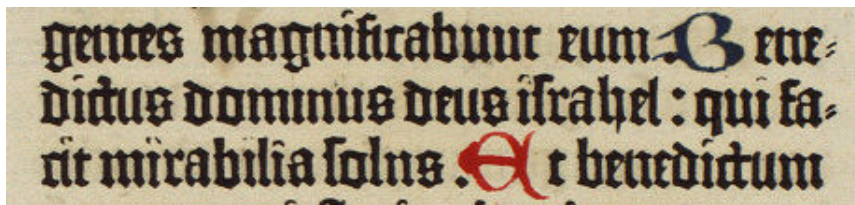 gentes magnificabunt eum. Bene-
dictus dominus deus israhel: qui fa-
cit mirabilia solus. Et benedictum